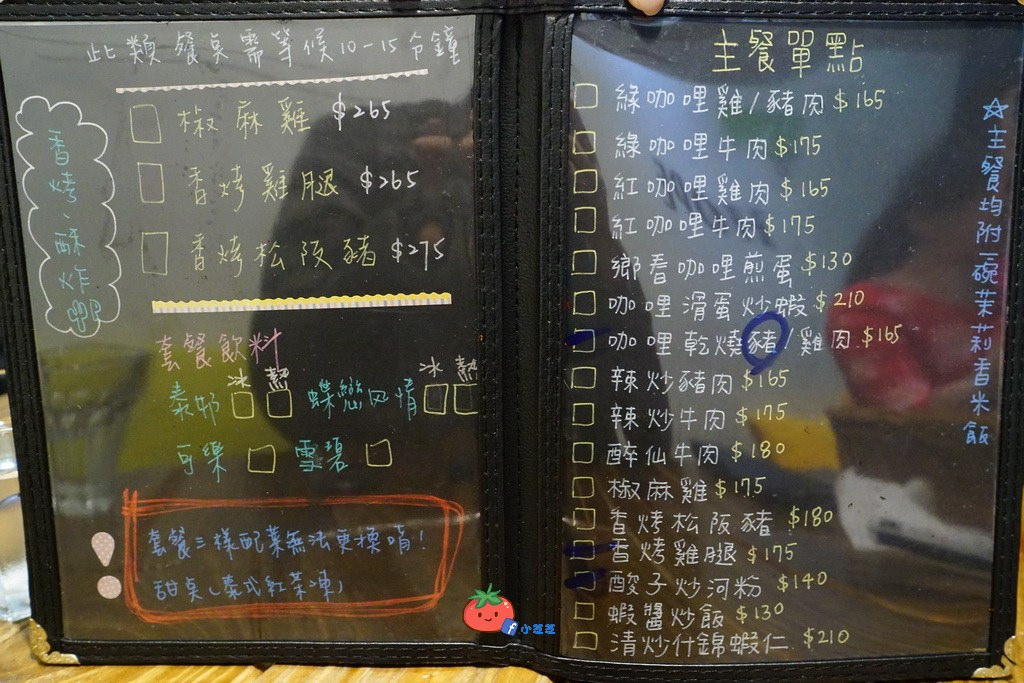 此類餐桌需等候10-15分鐘
香烤、酥炸
椒麻雞 $265
香烤雞腿 $265
香烤松阪豬 $275
套餐飲料
冰 熱 冰 熱
泰奶 蝶戀风情
可樂 雪碧
套餐三樣配菜無法更換唷!
甜桌(泰式紅茶凍)
小芝芝
主餐單點
綠咖哩雞/豬肉 $165
綠咖哩牛肉 $175
紅咖哩雞肉 $165
紅咖哩牛肉 $175
鄉香咖哩煎蛋 $130
咖哩滑蛋炒蝦 $210
咖哩乾燒豬/雞肉 $165
辣炒豬肉 $165
辣炒牛肉 $175
醉仙牛肉 $180
椒麻雞 $175
香烤松阪豬 $180
香烤雞腿 $175
酸子炒河粉 $140
蝦醬炒飯 $130
清炒什錦蝦仁 $210
☆主餐均附一碗茉莉香米飯